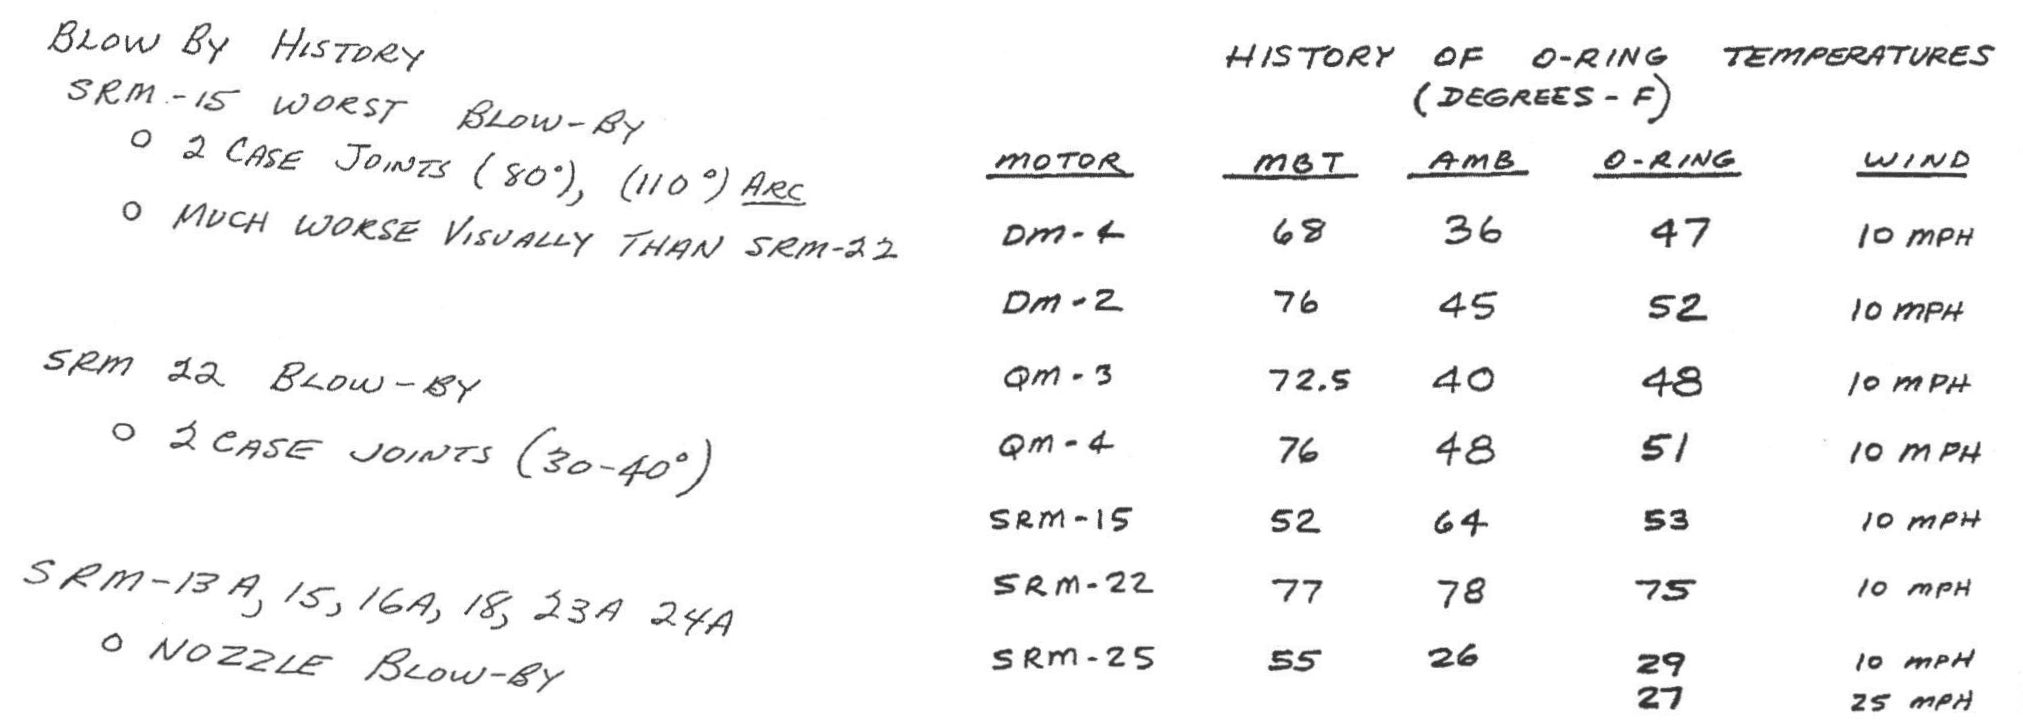 BLOW BY HISTORY
SRM-15 WORST BLOW-BY
o 2 CASE JOINTS (80°), (110°) ARC
o MUCH WORSE VISUALLY THAN SRM-22
SRM 22 BLOW-BY
o 2 CASE JOINTS (30-40°)
SRM-13A, 15, 16A, 18, 23A 24A
o NOZZLE BLOW-BY
HISTORY OF O-RING TEMPERATURES
(DEGREES - F)
MOTOR MBT AMB O-RING WIND
DM-4 68 36 47 10 MPH
DM-2 76 45 52 10 MPH
QM-3 72.5 40 48 10 MPH
QM-4 76 48 51 10 MPH
SRM-15 52 64 53 10 MPH
SRM-22 77 78 75 10 MPH
SRM-25 55 26 29 10 MPH
27 25 MPH